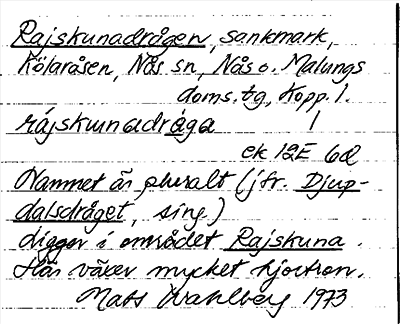 Rajskunadrågen, sankmark,
Köjaråsen, Nås sn, Nås o. Malungs
doms. tg, Kopp. l.
rájskunadråga
ek 12E 6d
Namnet är pluralt (jfr. Djup-
dalsdråget, sing.)
Ligger i området Rajskuna.
Här växer mycket hjortron.
Mats Wahlberg 1973